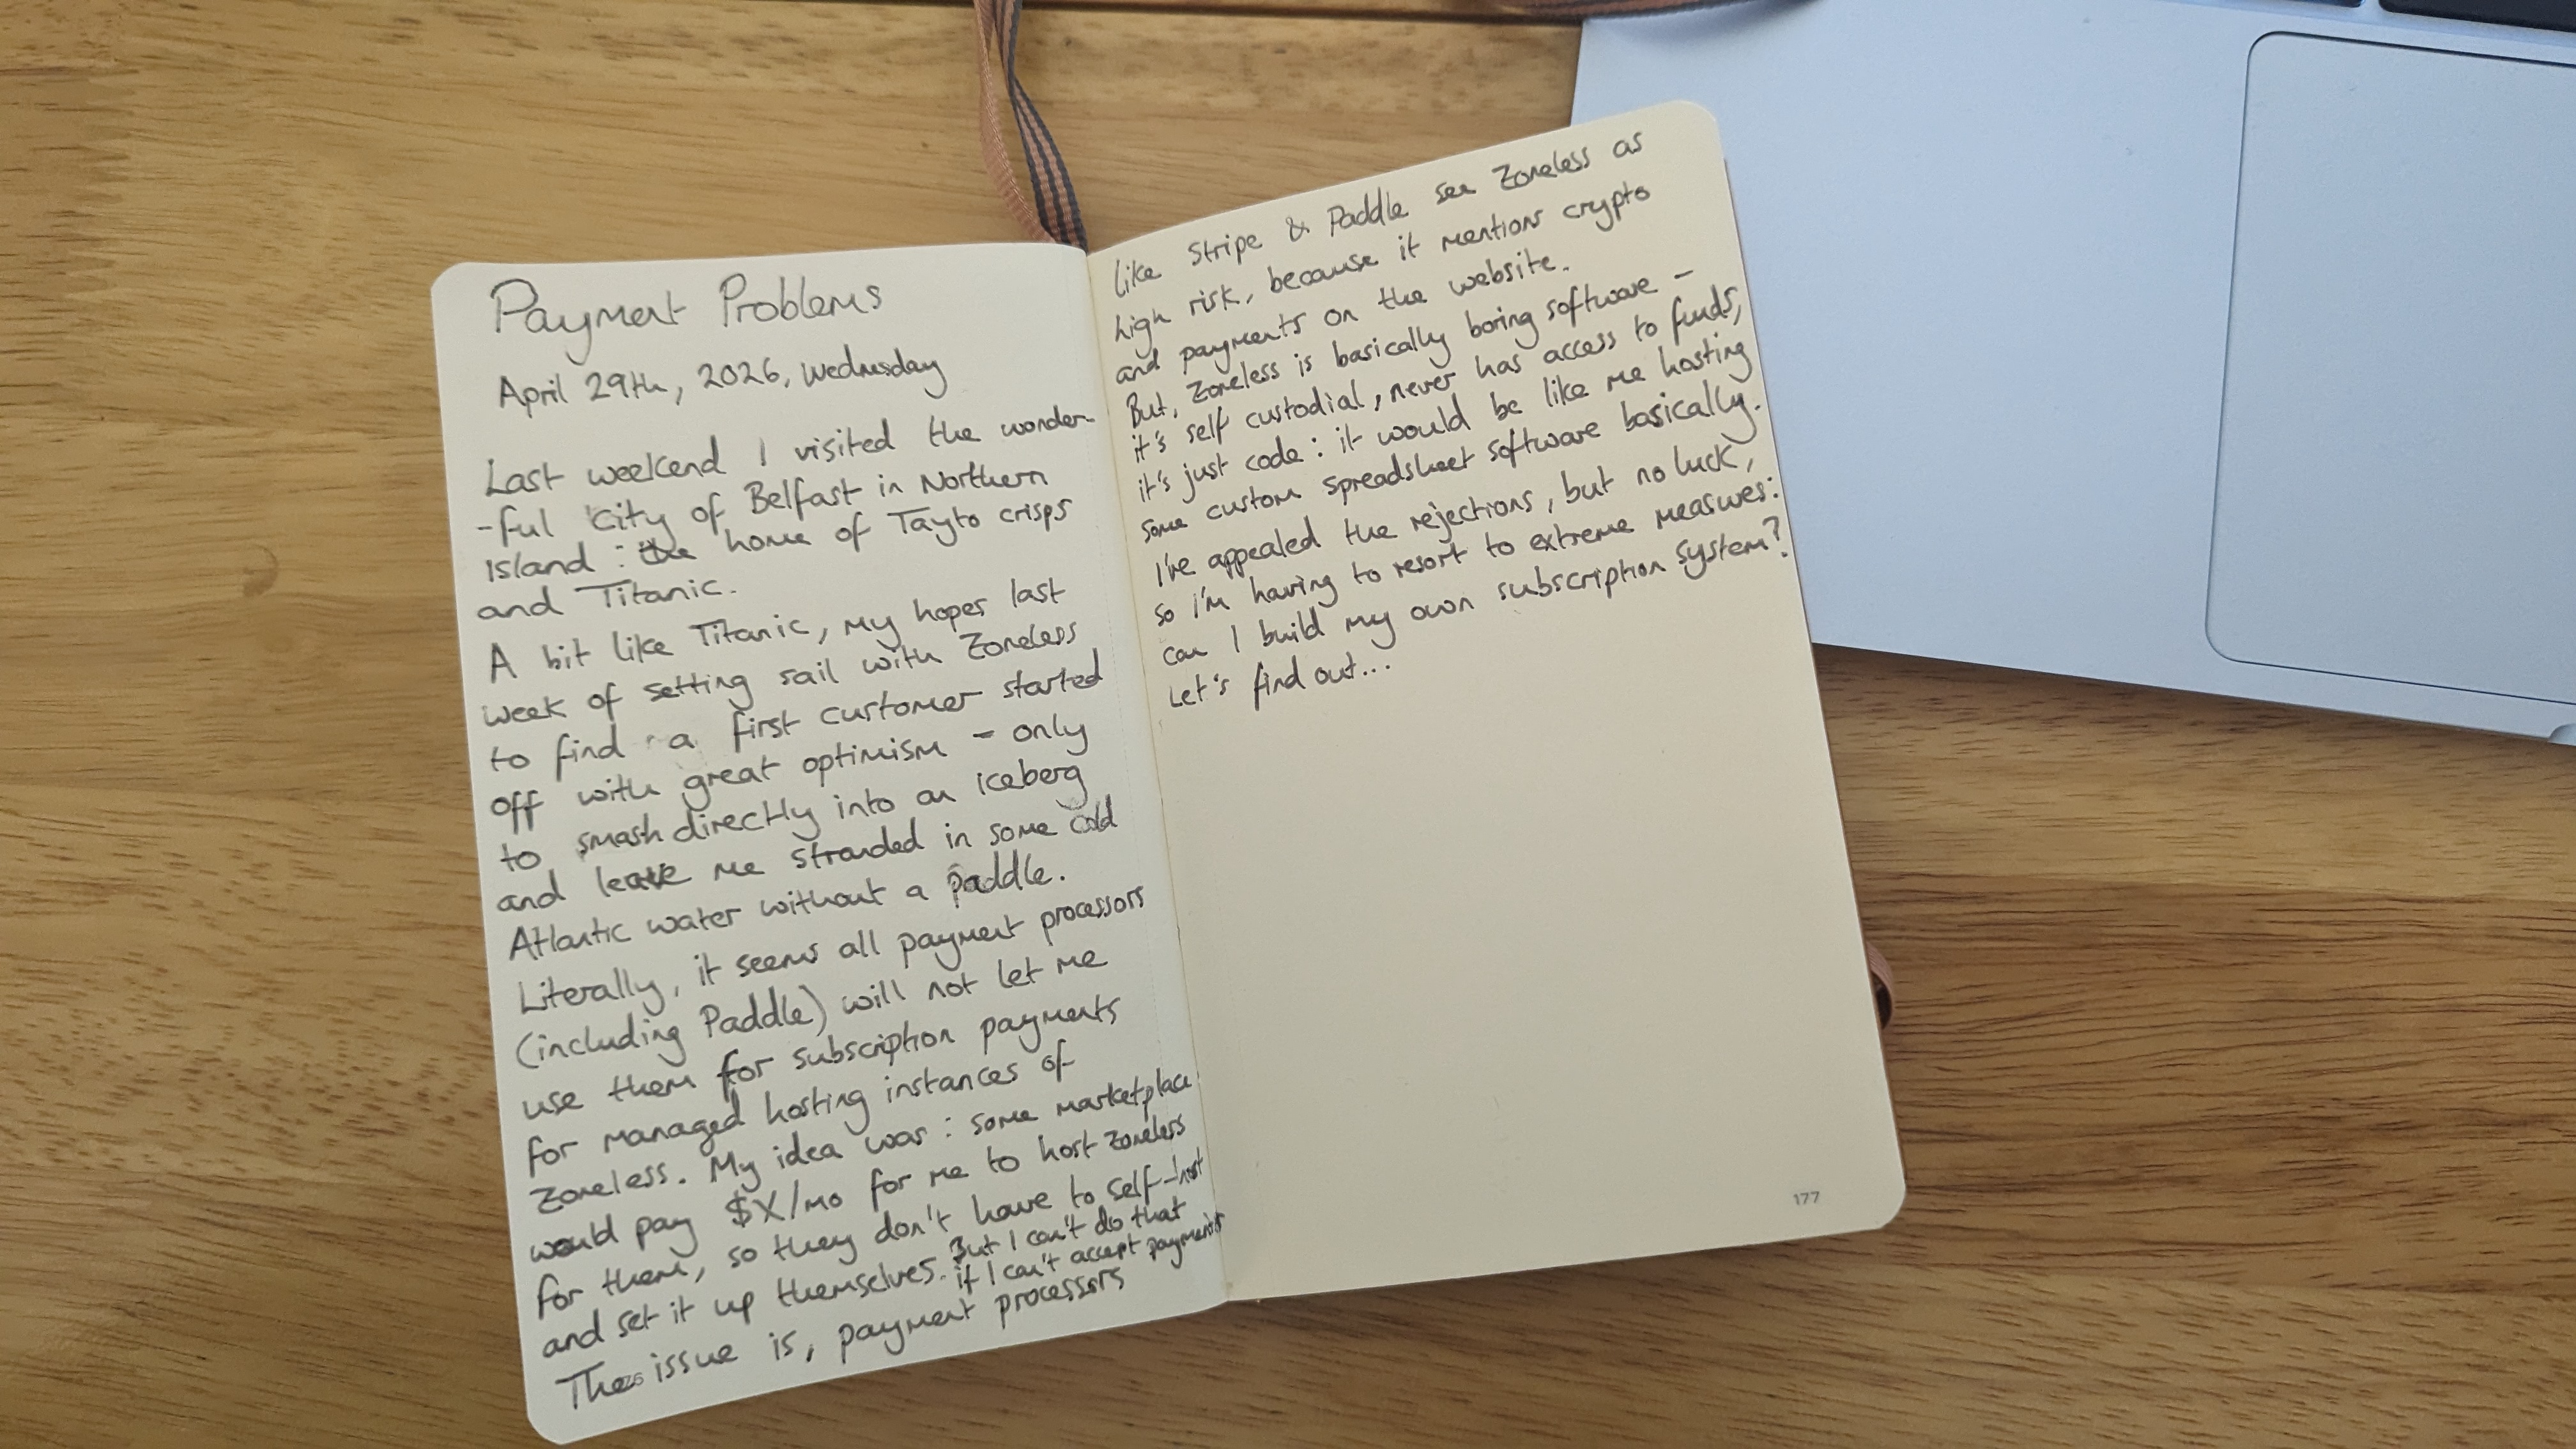 Payment Problems
April 29th, 2026, Wednesday
Last weekend I visited the wonder-
-ful city of Belfast in Northern
Island : the home of Tayto crisps
and Titanic.
A bit like Titanic, my hopes last
week of setting sail with Zoneless
to find a first customer started
off with great optimism - only
to smash directly into an iceberg
and leave me stranded in some cold
Atlantic water without a paddle.
Literally, it seems all payment processors
(including Paddle) will not let me
use them for subscription payments
for managed hosting instances of
Zoneless. My idea was : some marketplace
would pay $X/mo for me to host Zoneless
for them, so they don't have to self-host
and set it up themselves. But I can't do that
if I can't accept payments
The issue is, payment processors
like Stripe & Paddle see Zoneless as
high risk, because it mentions crypto
and payments on the website.
But, Zoneless is basically boring software -
it's self custodial, never has access to funds,
it's just code : it would be like me hosting
some custom spreadsheet software basically.
I've appealed the rejections, but no luck,
so I'm having to resort to extreme measures:
can I build my own subscription system?
Let's find out...
177